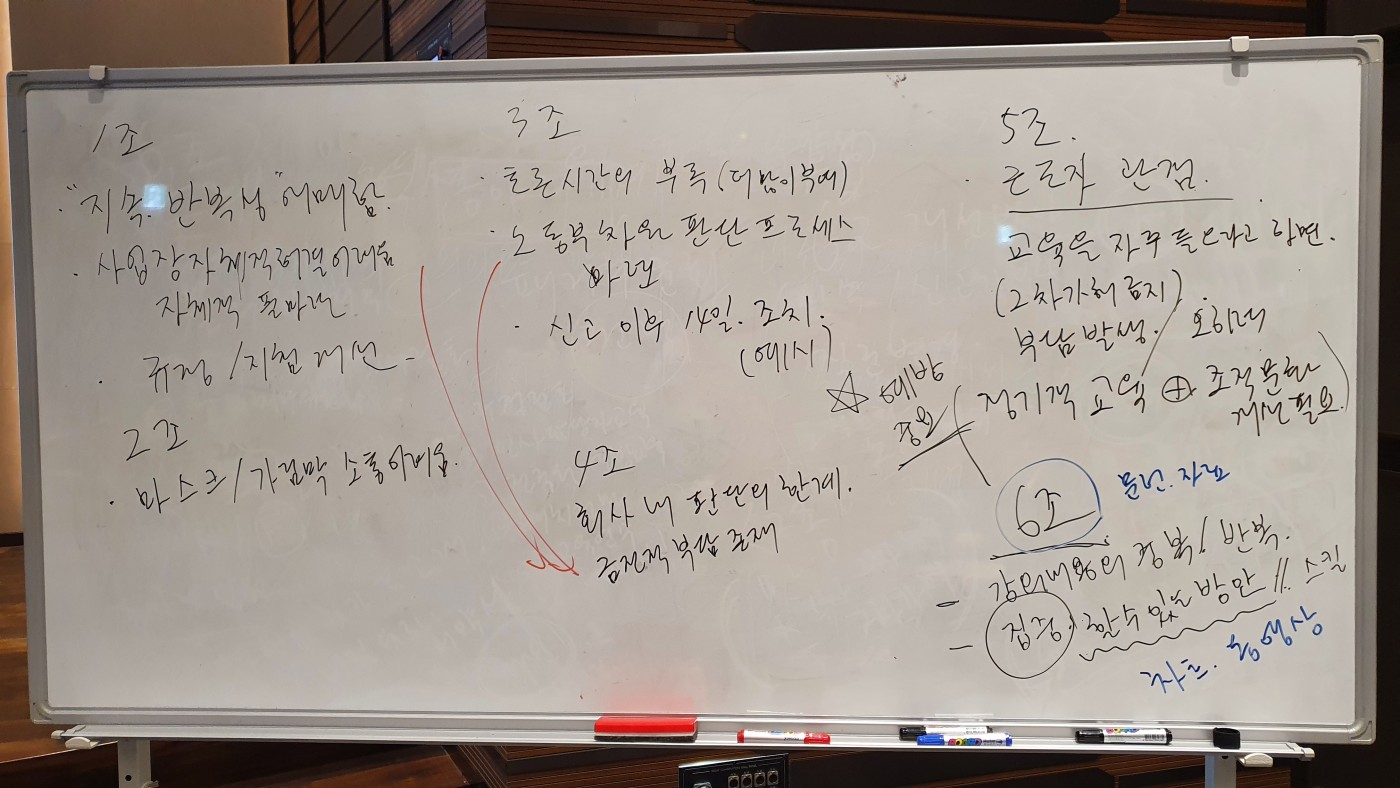 1조
· "지속. 반복성" 애매함.
· 사업장 자체적 해결 어려움
자체적 룰마련.
· 규정 / 지침 개선
2조
· 마스크 / 가림막 소통어려움.
3조
· 토론시간의 부족 (더 많이 부여)
· 노동부 차원 판단 프로세스
마련
· 신고 이후 14일. 조치.
(예시)
4조
회사 내 판단의 한계.
금전적 부담 존재
5조.
· 근로자 관점.
교육을 자주 들으라고 하면.
(2차가해 금지)
부담발생. 오히려
☆ 예방
중요
정기적 교육 ⊕ 조직문화
개선필요.
6조
- 강의내용의 중복 / 반복.
- 집중. 할 수 있는 방안 // 스킬
동영상